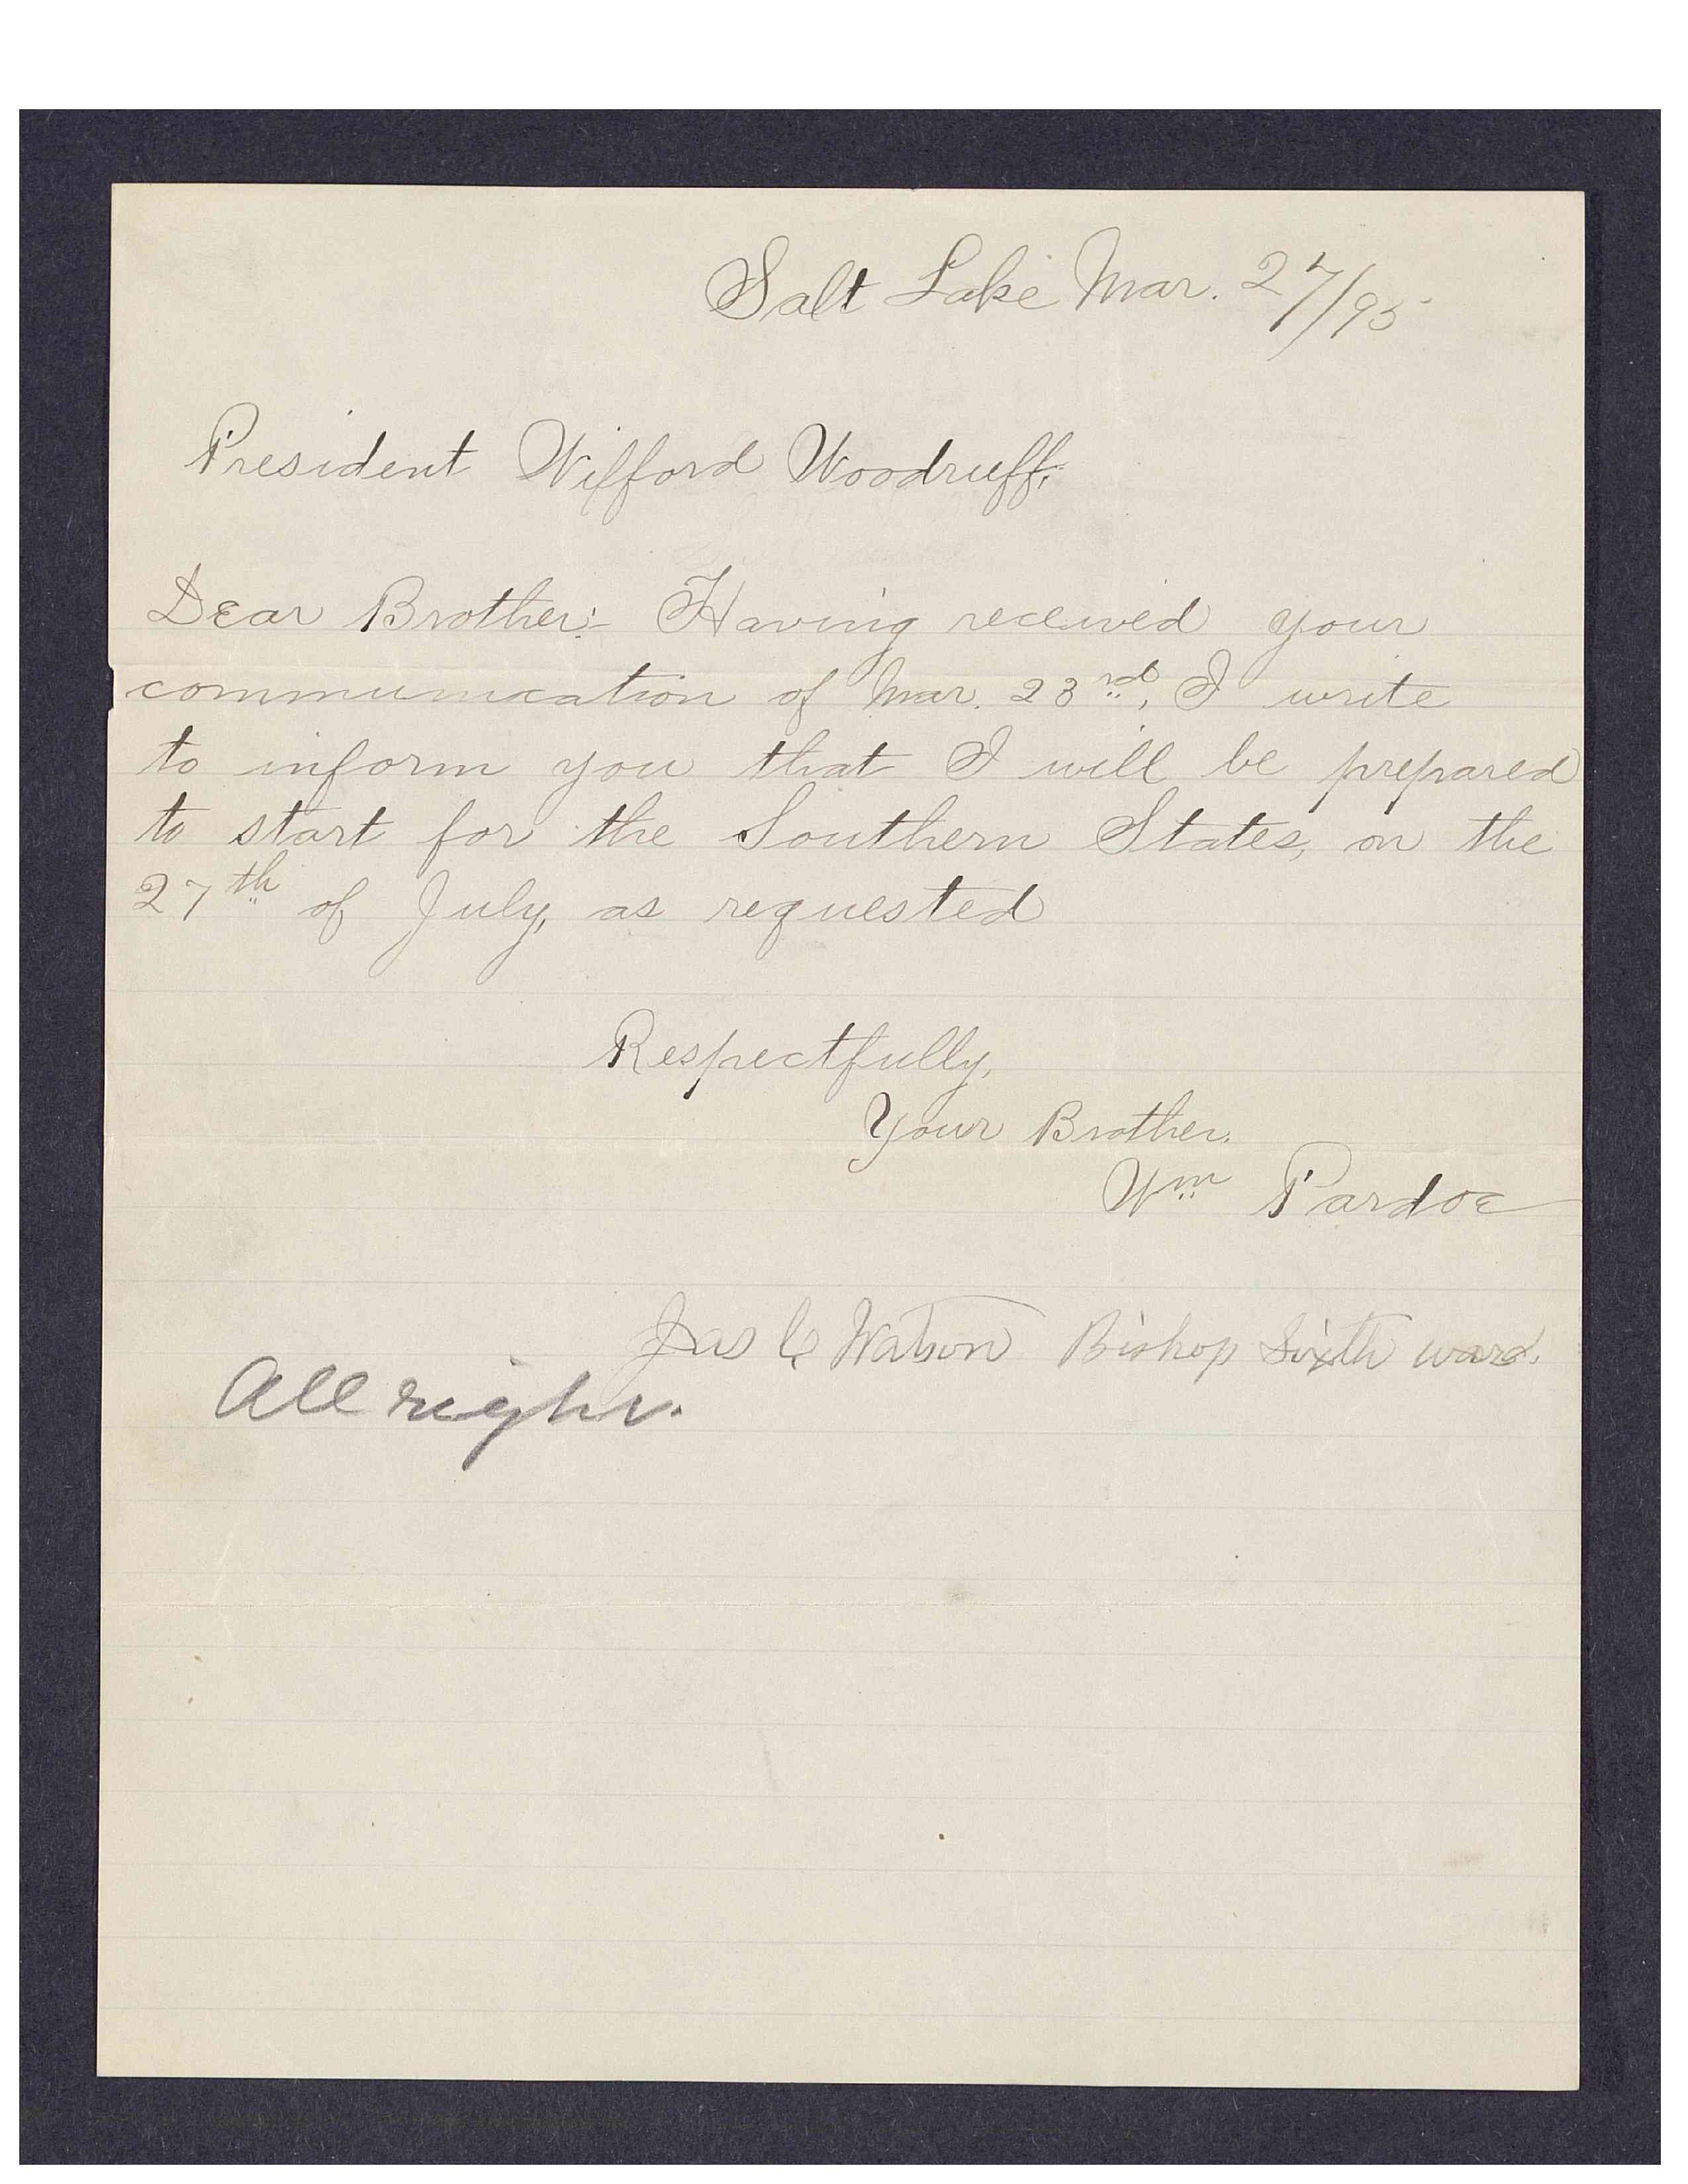 Salt Lake Mar. 27/95
President Wilford Woodruff,
Dear Brother:- Having received your
communication of Mar. 23rd, I write
to inform you that I will be prepared
to start for the Southern States, on the
27th of July, as requested
Respectfully,
Your Brother.
Wm Pardoe
Jas C Watson Bishop Sixth ward.
All right.